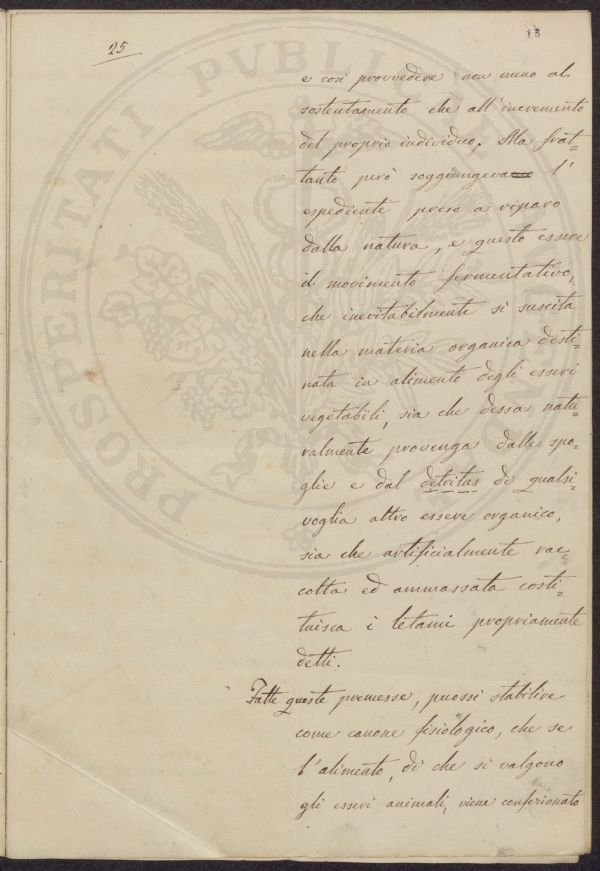 25
15
e così provvedere non meno al
sostentamento che all'incremento
del proprio individuo. Ma frat=
tanto però soggiungeva l'
espediente preso a riparo
dalla natura, e questo essere
il movimento fermentativo,
che inevitabilmente si suscita
nella materia organica desti=
nata in alimento degli esseri
vegetabili, sia che dessa natu=
ralmente provenga dalle spo=
glie e dal detritus di qualsi=
voglia altro essere organico,
sia che artificialmente rac=
colta ed ammassata costi=
tuisca i letami propriamente
detti.
Fatte queste premesse, puossi stabilire
come canone fisiologico, che se
l'alimento, di che si valgono
gli esseri animali, viene confezionato
PROSPERITATI PVBLICAE